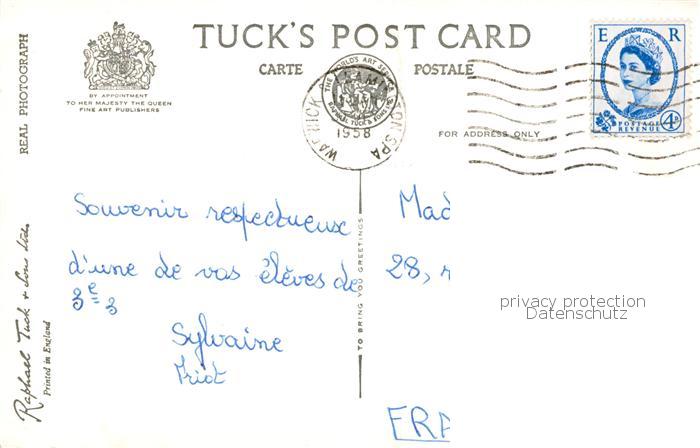 TUCK'S POST CARD
CARTE POSTALE
BY APPOINTMENT
TO HER MAJESTY THE QUEEN
FINE ART PUBLISHERS
REAL PHOTOGRAPH
E R
POSTAGE
REVENUE
4D
WARWICK LEAMINGTON SPA
1958
THE WORLD'S ART SERVICE
RAPHAEL TUCK & SONS LTD.
FOR ADDRESS ONLY
Souvenir respectueux
d'une de vos élèves de
3e 3
Sylvaine
TO BRING YOU GREETINGS
Mad
28, r
FRA
privacy protection
Datenschutz
Raphael Tuck & Sons Ltd.
Printed in England